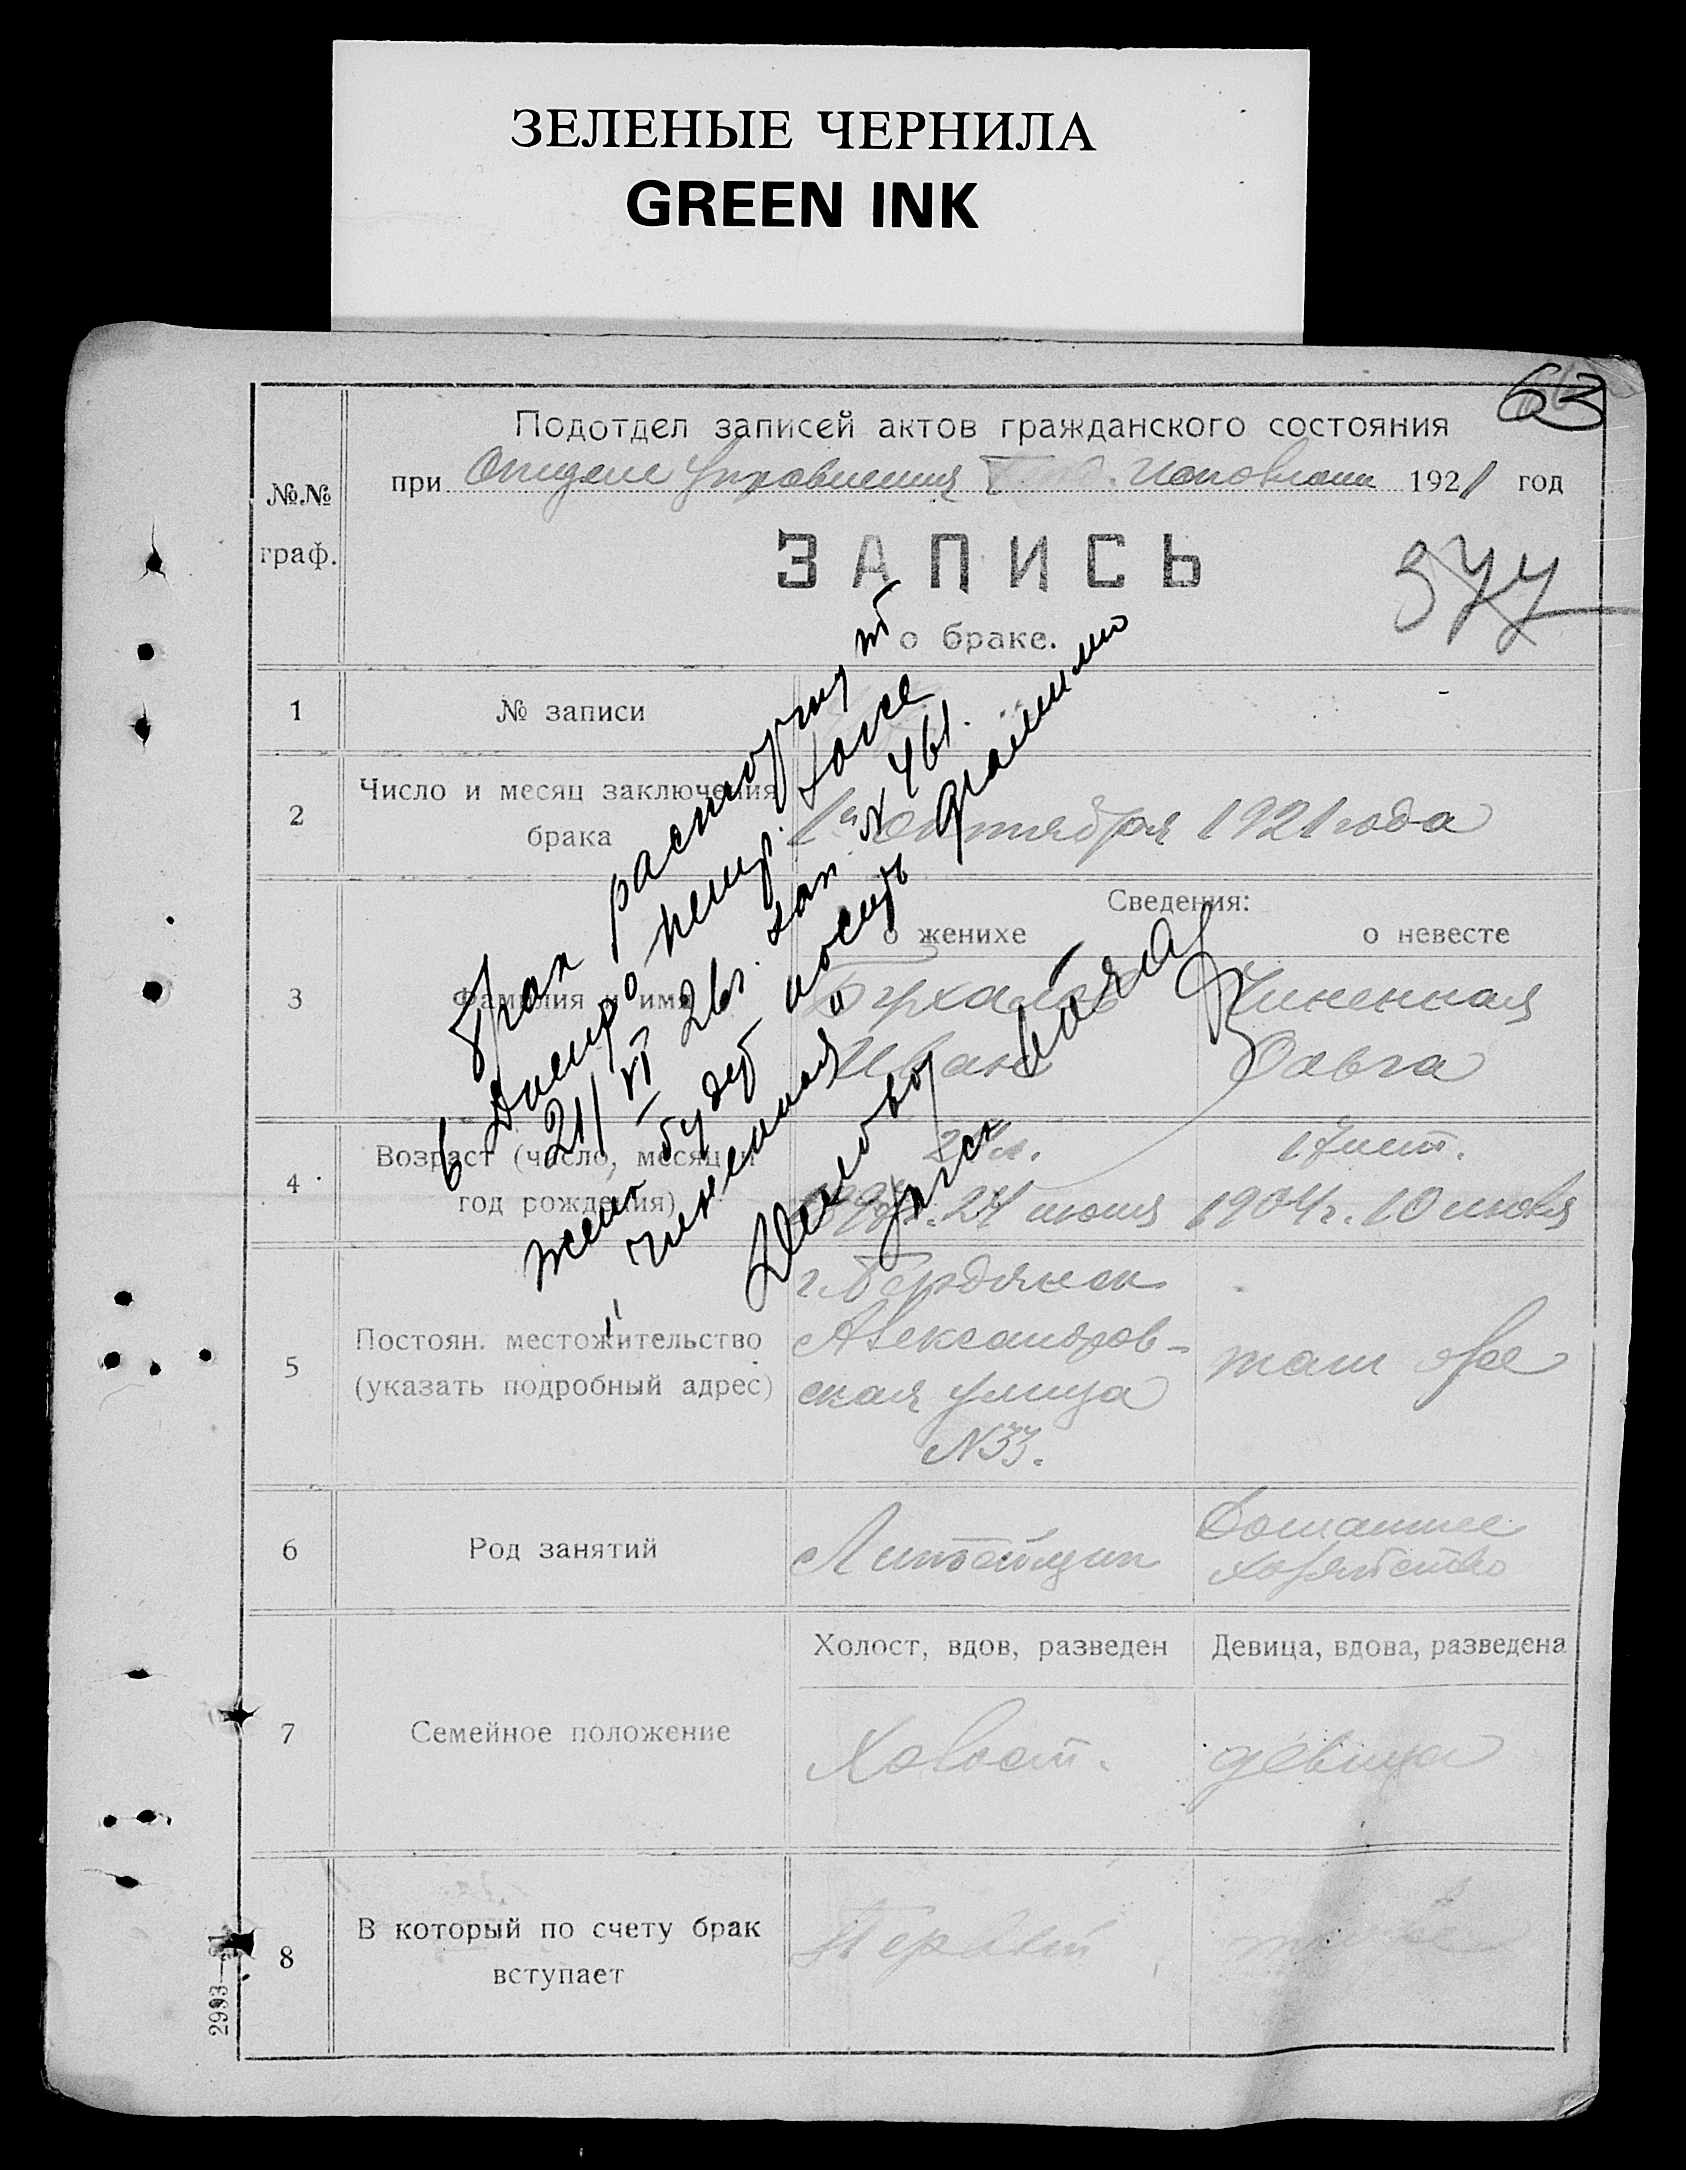 ЗЕЛЕНЫЕ ЧЕРНИЛА
GREEN INK
63
Подотдел записей актов гражданского состояния
при Отделе Управления Исполкома 1921 год
№№
граф.
ЗАПИСЬ
377
о браке.
1
№ записи
2
Число и месяц заключения
брака
1го октября 1921 года
Сведения:
о женихе
о невесте
3
Фамилия и имя
Чиненная
Иван
Ольга
4
Возраст (число, месяц и
год рождения)
24 л.
17 лет.
24 июня
1904 г. 10 июля
5
Постоян. местожительство
(указать подробный адрес)
г. Бердянск
Александров-
ская улица
N 33.
там же
6
Род занятий
Литейщик
Домашнее
хозяйство
7
Семейное положение
Холост, вдов, разведен
Девица, вдова, разведена
Холост.
девица
8
В который по счету брак
вступает
Первый
тоже
2993—21
Брак расторгнут
в Днепропетр. Загсе
21/VI 26г. зап. N 461.
жена будет носить фамилию
"Чиненная"
Деловод
Загса